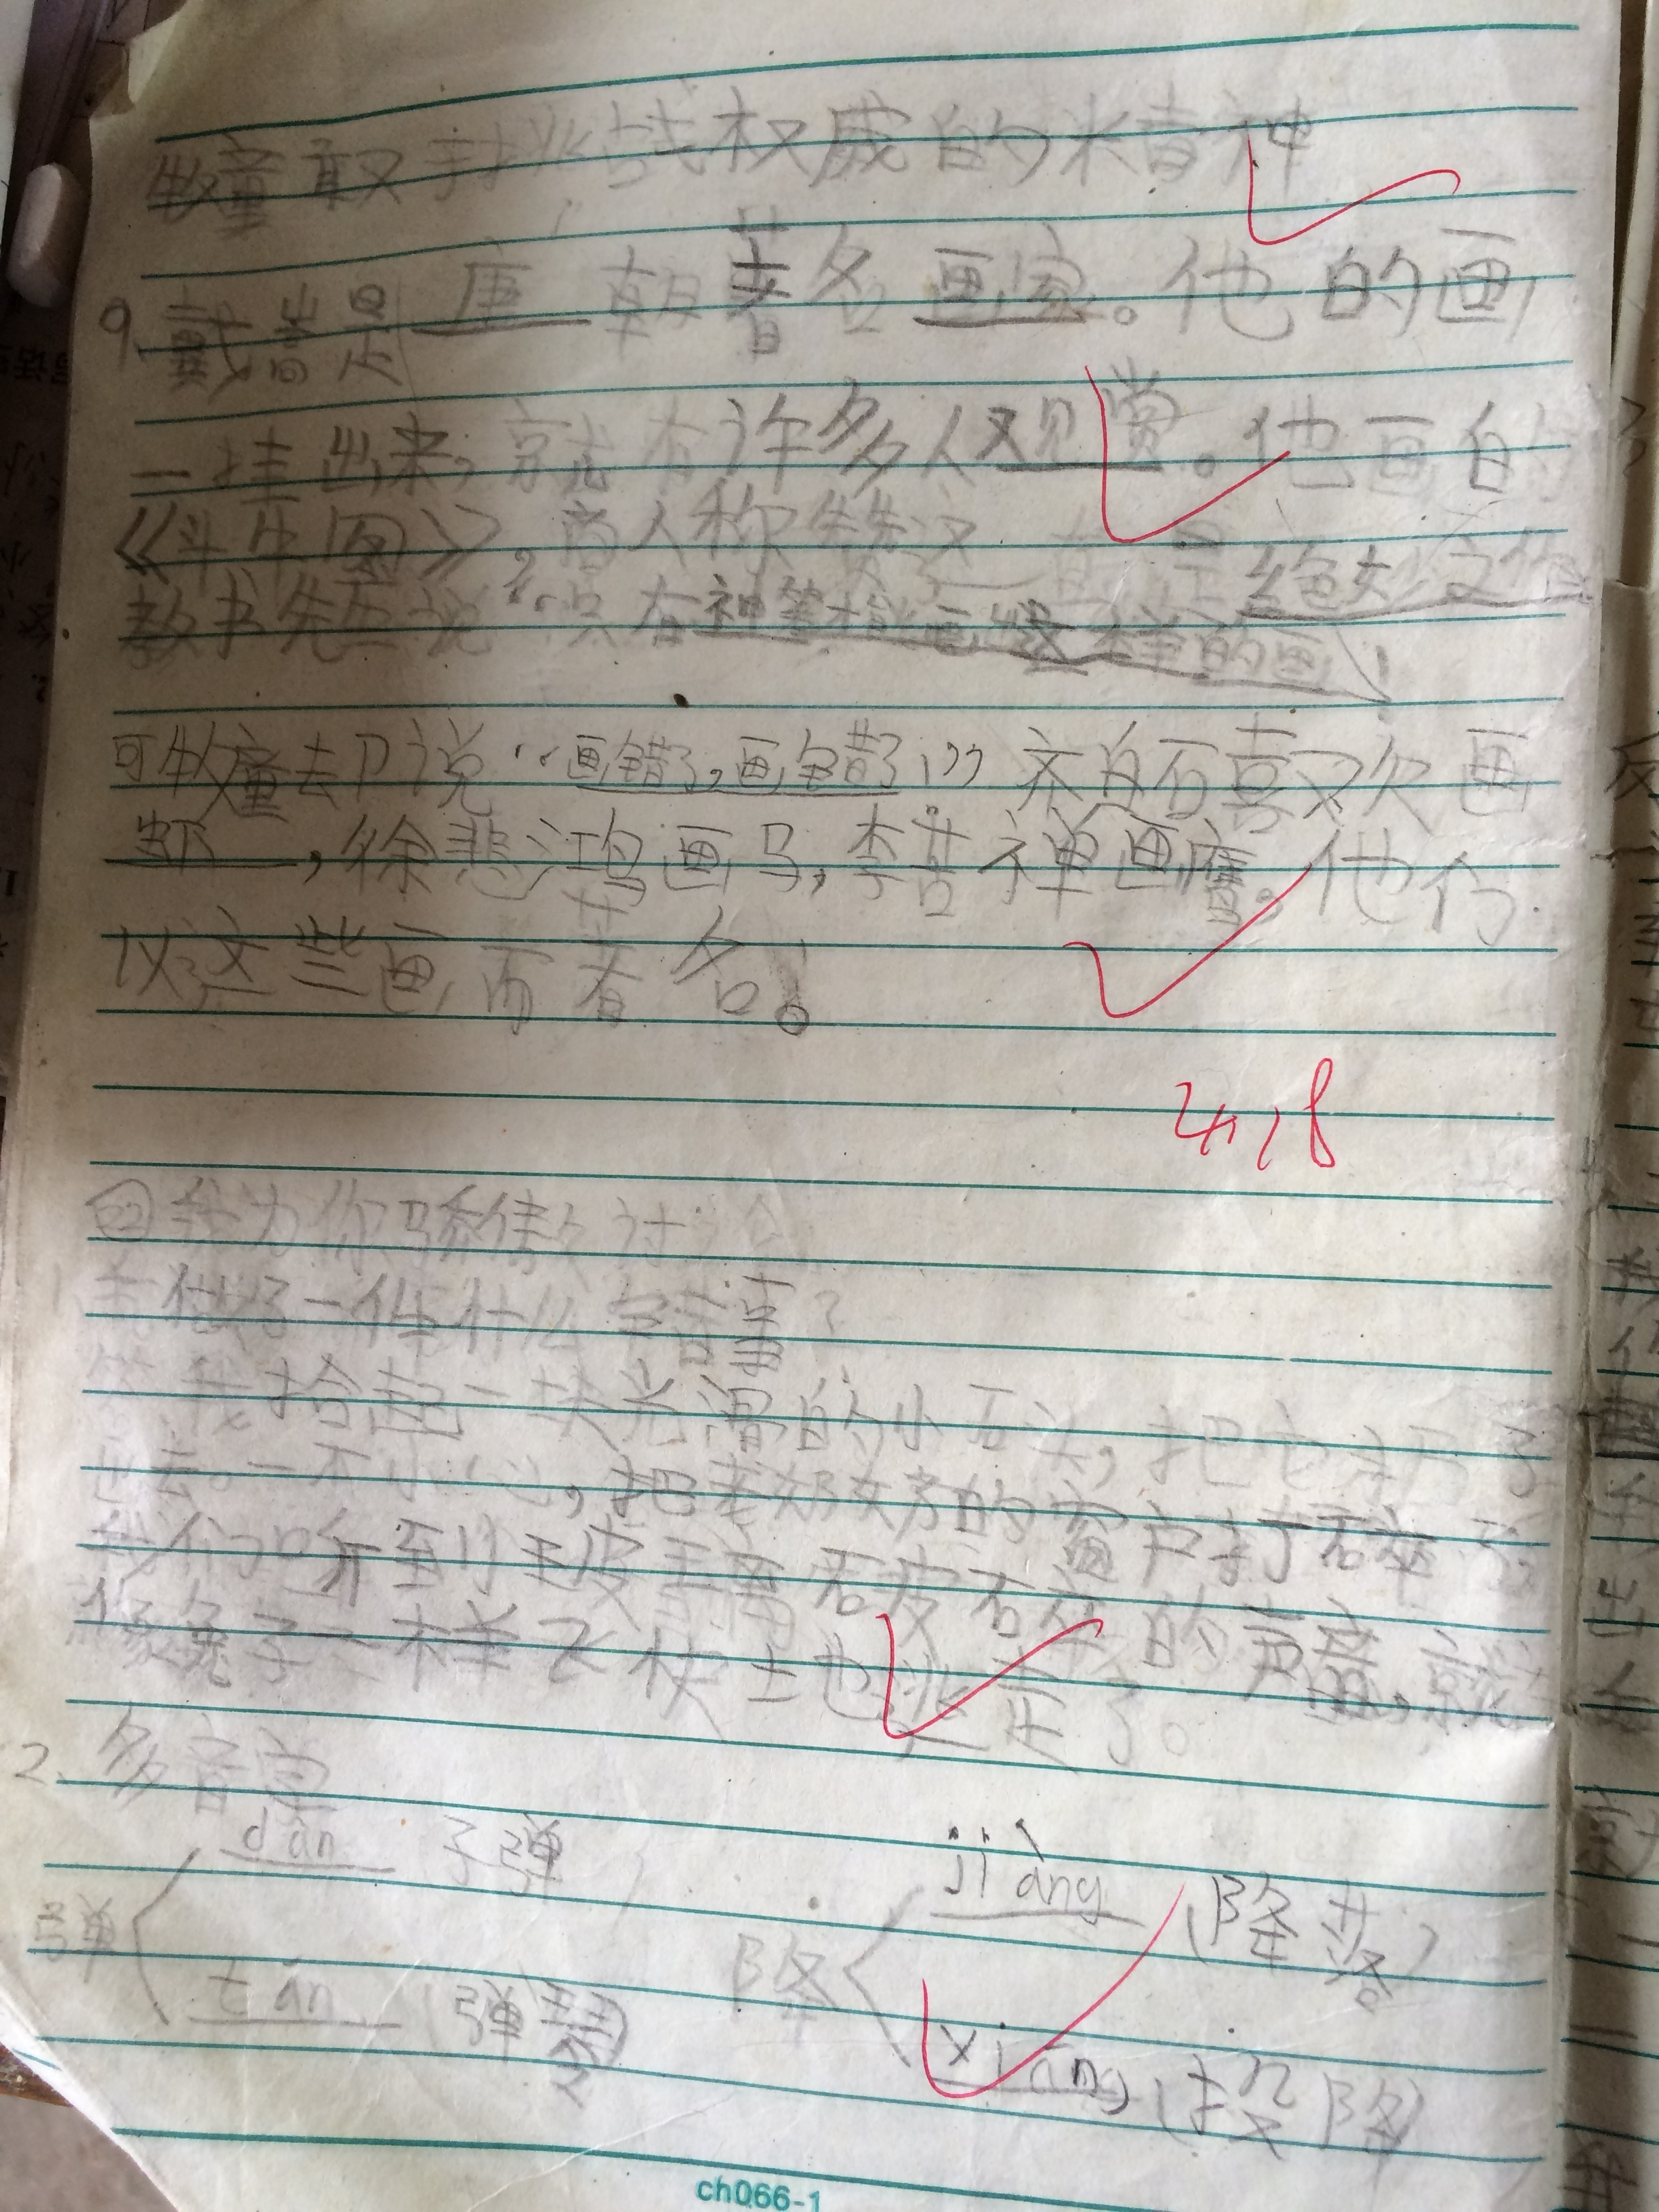 牧童敢于挑战权威的精神
9.戴嵩是唐朝著名画家。他的画
一挂出来,就有许多人观赏。他画的
《斗牛图》,商人称赞这是绝妙之作
教书先生说“只有神笔才能画出这样的画!
可牧童却说“画错了,画错了!”齐白石喜欢画
虾,徐悲鸿画马,李苦禅画鹰。他们
以这些画而著名!
4.18
我为你骄傲讨论
1.我做了一件什么事?
答:我拾起一块光滑的小石头,把它扔了
出去。一不小心,把老奶奶的窗户打碎了。
我们听到玻璃破碎的声音,就
像兔子一样飞快地逃走了。
2.多音字
dàn 子弹 jiàng (降落)
弹 降
tán (弹琴) xiáng (投降)
ch066-1